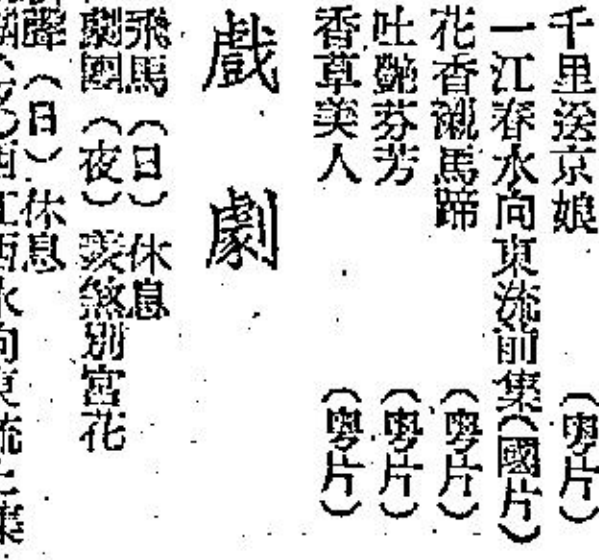 千里送京娘（粵片）
一江春水向東流前集（國片）
花香襯馬蹄（粵片）
吐艷芬芳（粵片）
香草美人（粵片）
戲劇
飛馬（日）休息
劇團（夜）羨煞別宮花
聲（日）休息
西江西水向東流上集